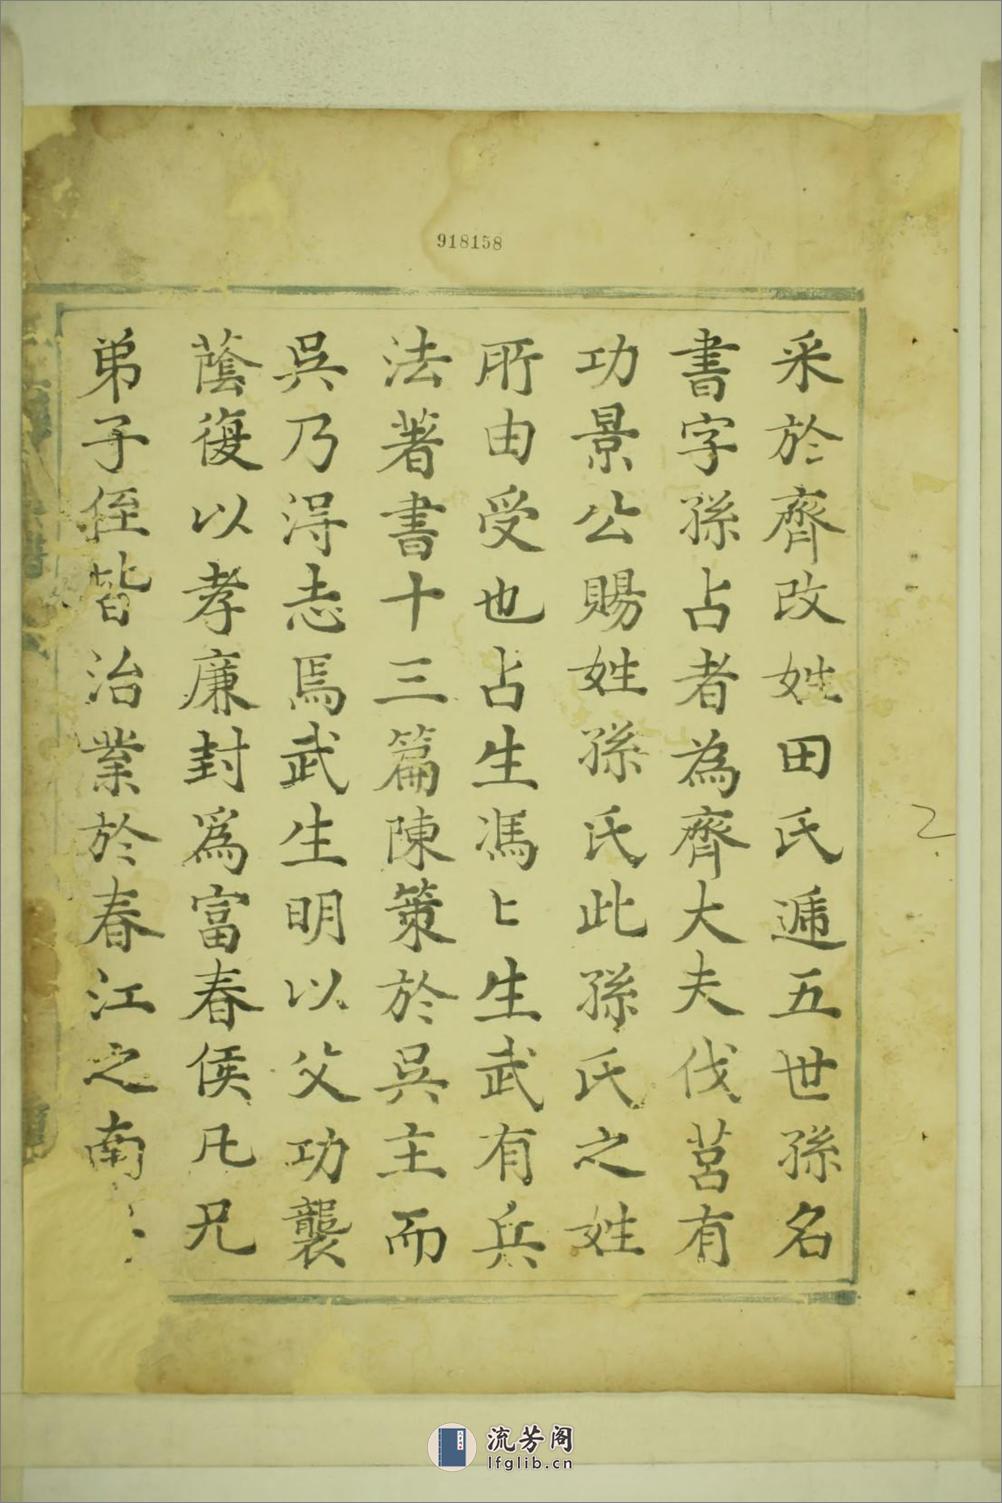 918158
采於齊改姓田氏遞五世孫名
書字孫占者為齊大夫伐莒有
功景公賜姓孫氏此孫氏之姓
所由受也占生馮〻生武有兵
法著書十三篇陳策於吳主而
吳乃淂志焉武生明以父功襲
蔭復以孝廉封爲富春侯凡兄
弟子侄皆治業於春江之南
流芳阁
lfglib.cn